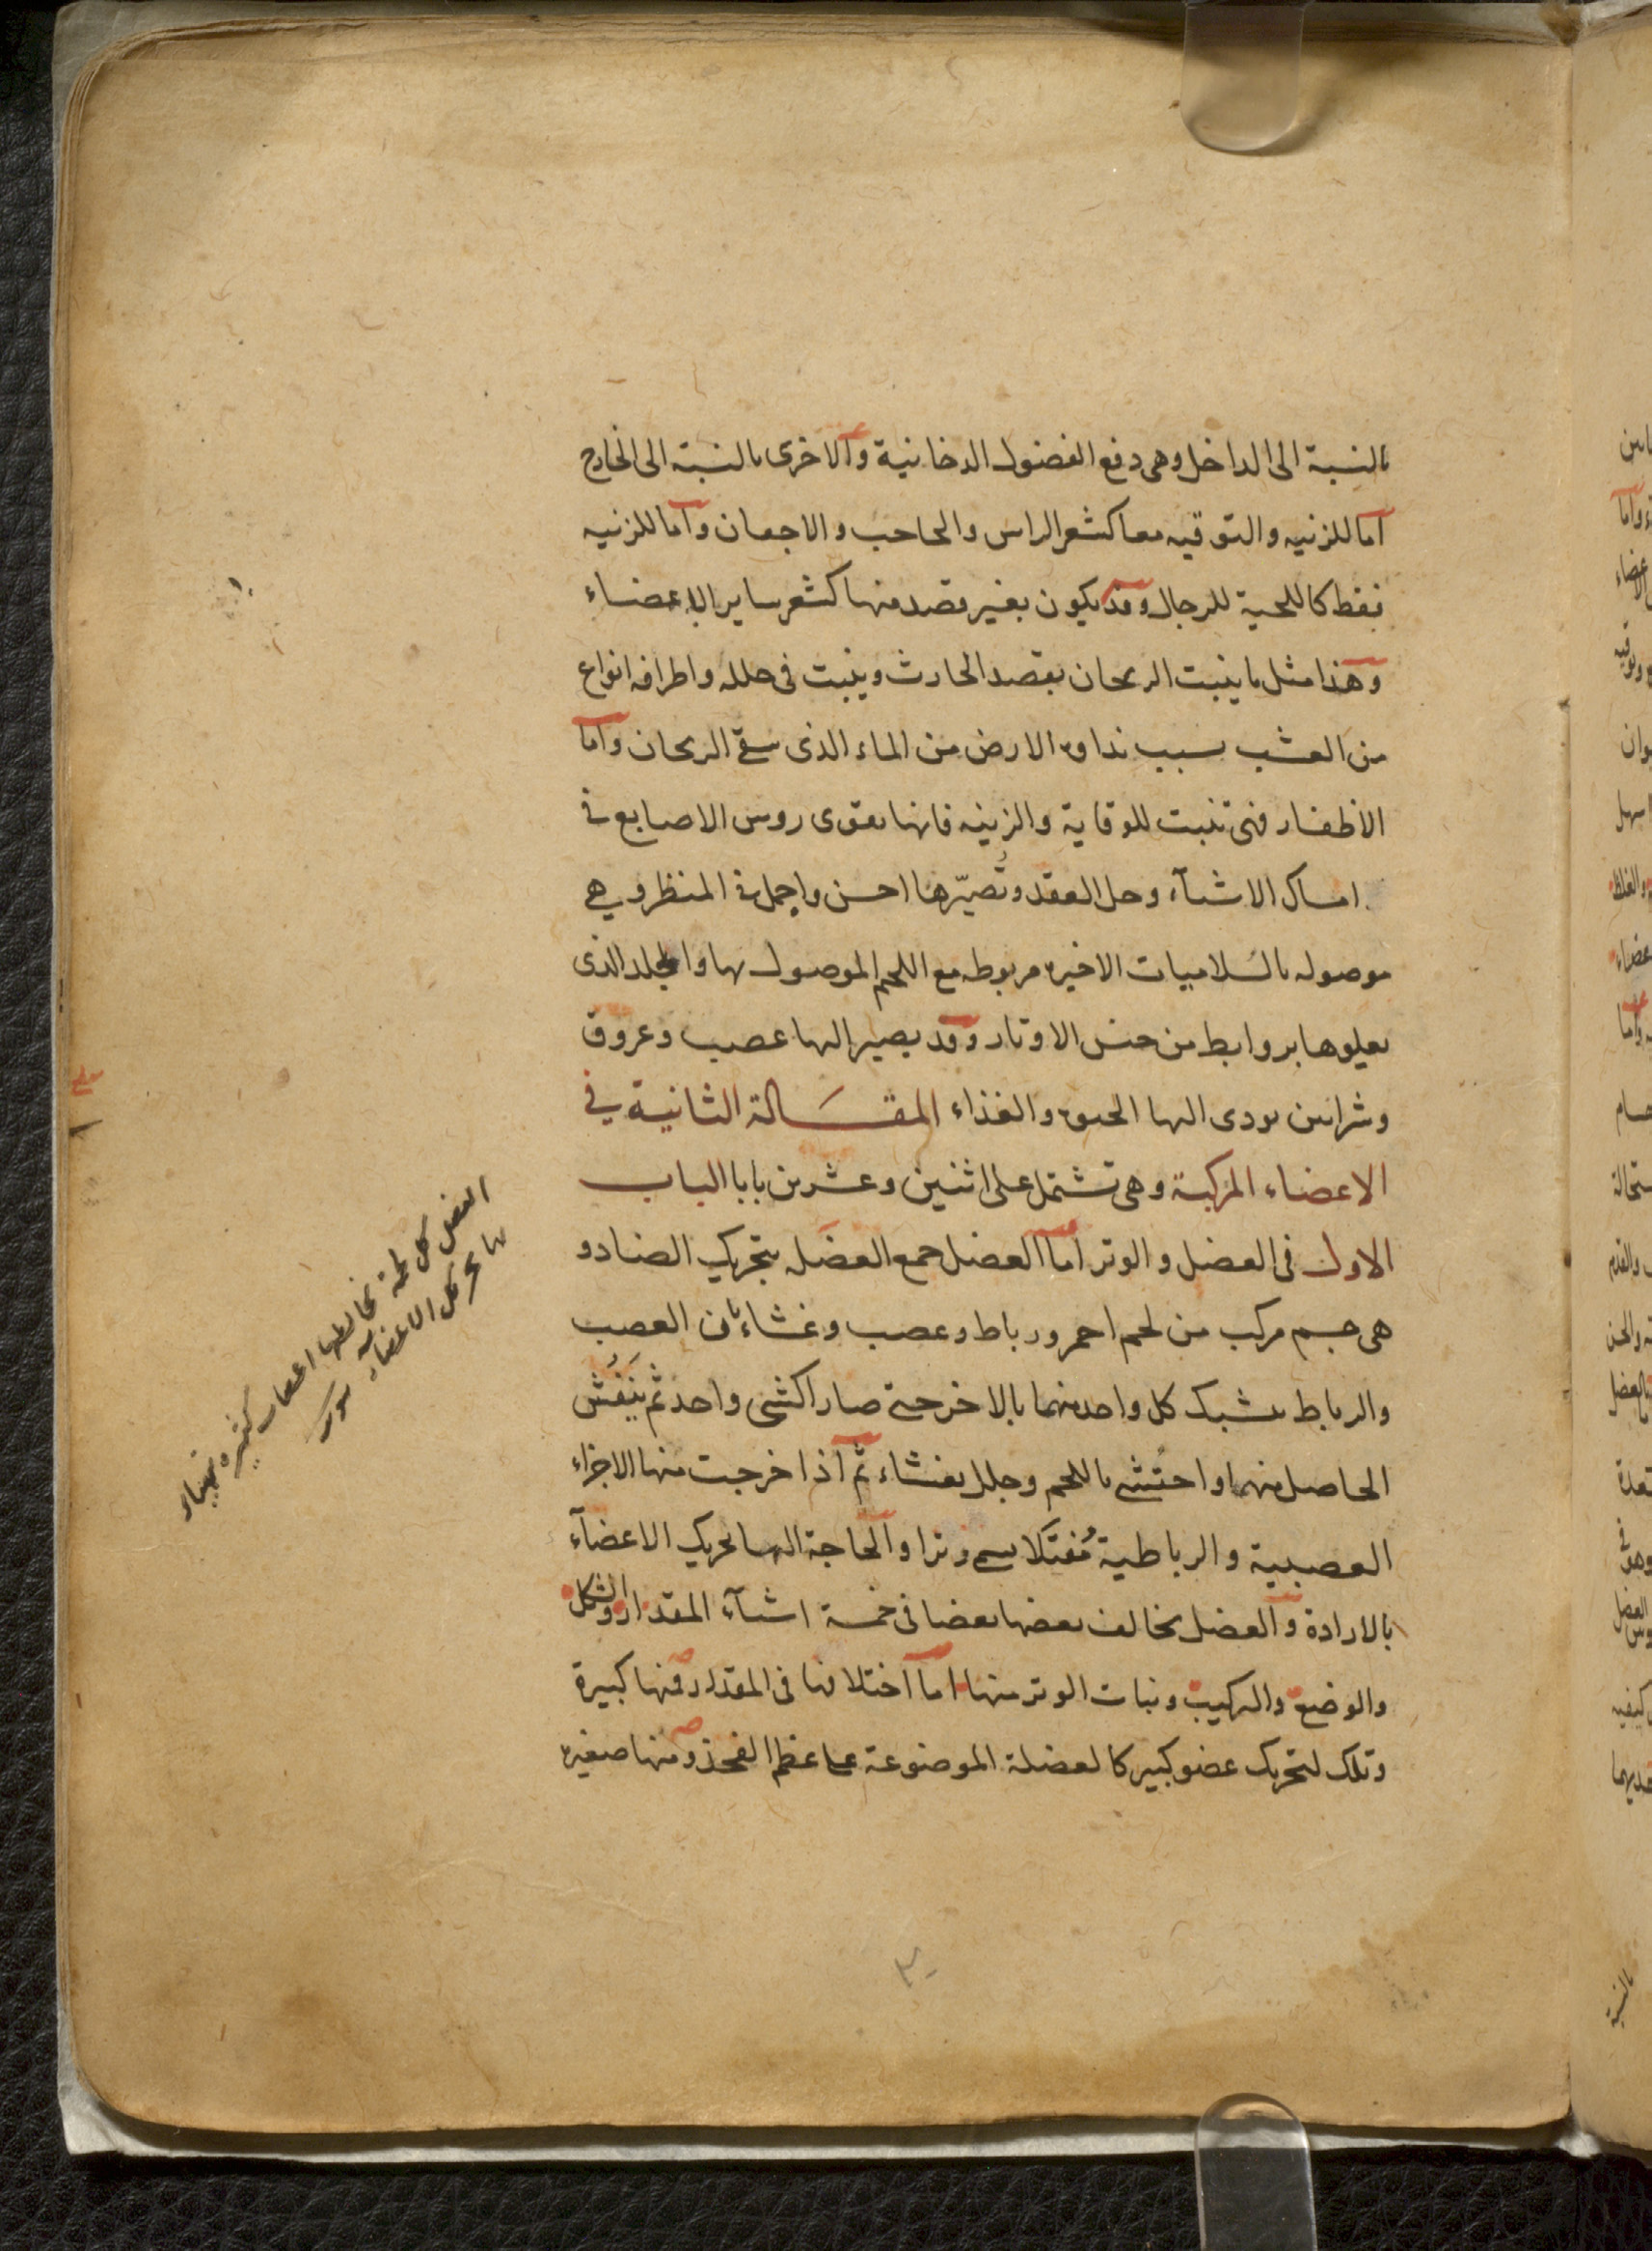 بالنسبة الى الداخل وهى دفع الفضول الدخانية والاخرى بالنسبة الى الخارج
اما للزنيه والتوقيه معا كشعر الراس والحاجب والاجفان واما للزنيه
فقط كاللحية للرجال وقد يكون بغير قصد منها كشعر ساير الاعضاء
وهذا مثل ما ينبت الريحان بقصد الحارث وينبت فى خلله واطرافه انواع
من العشب بسبب نداوة الارض من الماء الذى سقى الريحان واما
الاظفار فهى تنبت للوقاية والزينه فانها تقوى روس الاصابع فى
امساك الاشياء وحل العقد وتُصيّرها احسن واجمل فى المنظر وهى
موصوله بالسلاميات الاخيره مربوطه مع اللحم الموصول بها والجلد الذى
يعلوها بروابط من جنس الاوتار وقد يصير اليها عصب وعروق
وشرائين تودى اليها الحيوة والغذاء المقالة الثانية فى
الاعضاء المركبة وهى تشتمل على اثنين وعشرين بابا الباب
الاول فى العضل والوتر اما العضل جمع العضله بتحريك الضاد و
هى جسم مركب من لحم احمر ورباط وعصب وغشاء بان العصب
والرباط يشبك كل واحد منهما بالاخر حتى صارا كشى واحد ثم يَنفُش
الحاصل منهما واحتُشى باللحم وجلل بغشاء ثم اذا خرجت منها الاجزاء
العصبية والرباطية مُفتَلا سمى وترا والحاجة اليها تحريك الاعضآء
بالارادة والعضل يخالف بعضها بعضا فى خمسة اشيآء المقدار والشكل
والوضع والتركيب ونبات الوتر منها اما اختلافها فى المقدار فمنها كبيرة
وتلك لتحريك عضو كبير كالعضلة الموضوعة على عظم الفخذ ومنها صغيره
العضل كل لحمة تخالطها اعصاب كثيره
بها تحرك الاعضاء